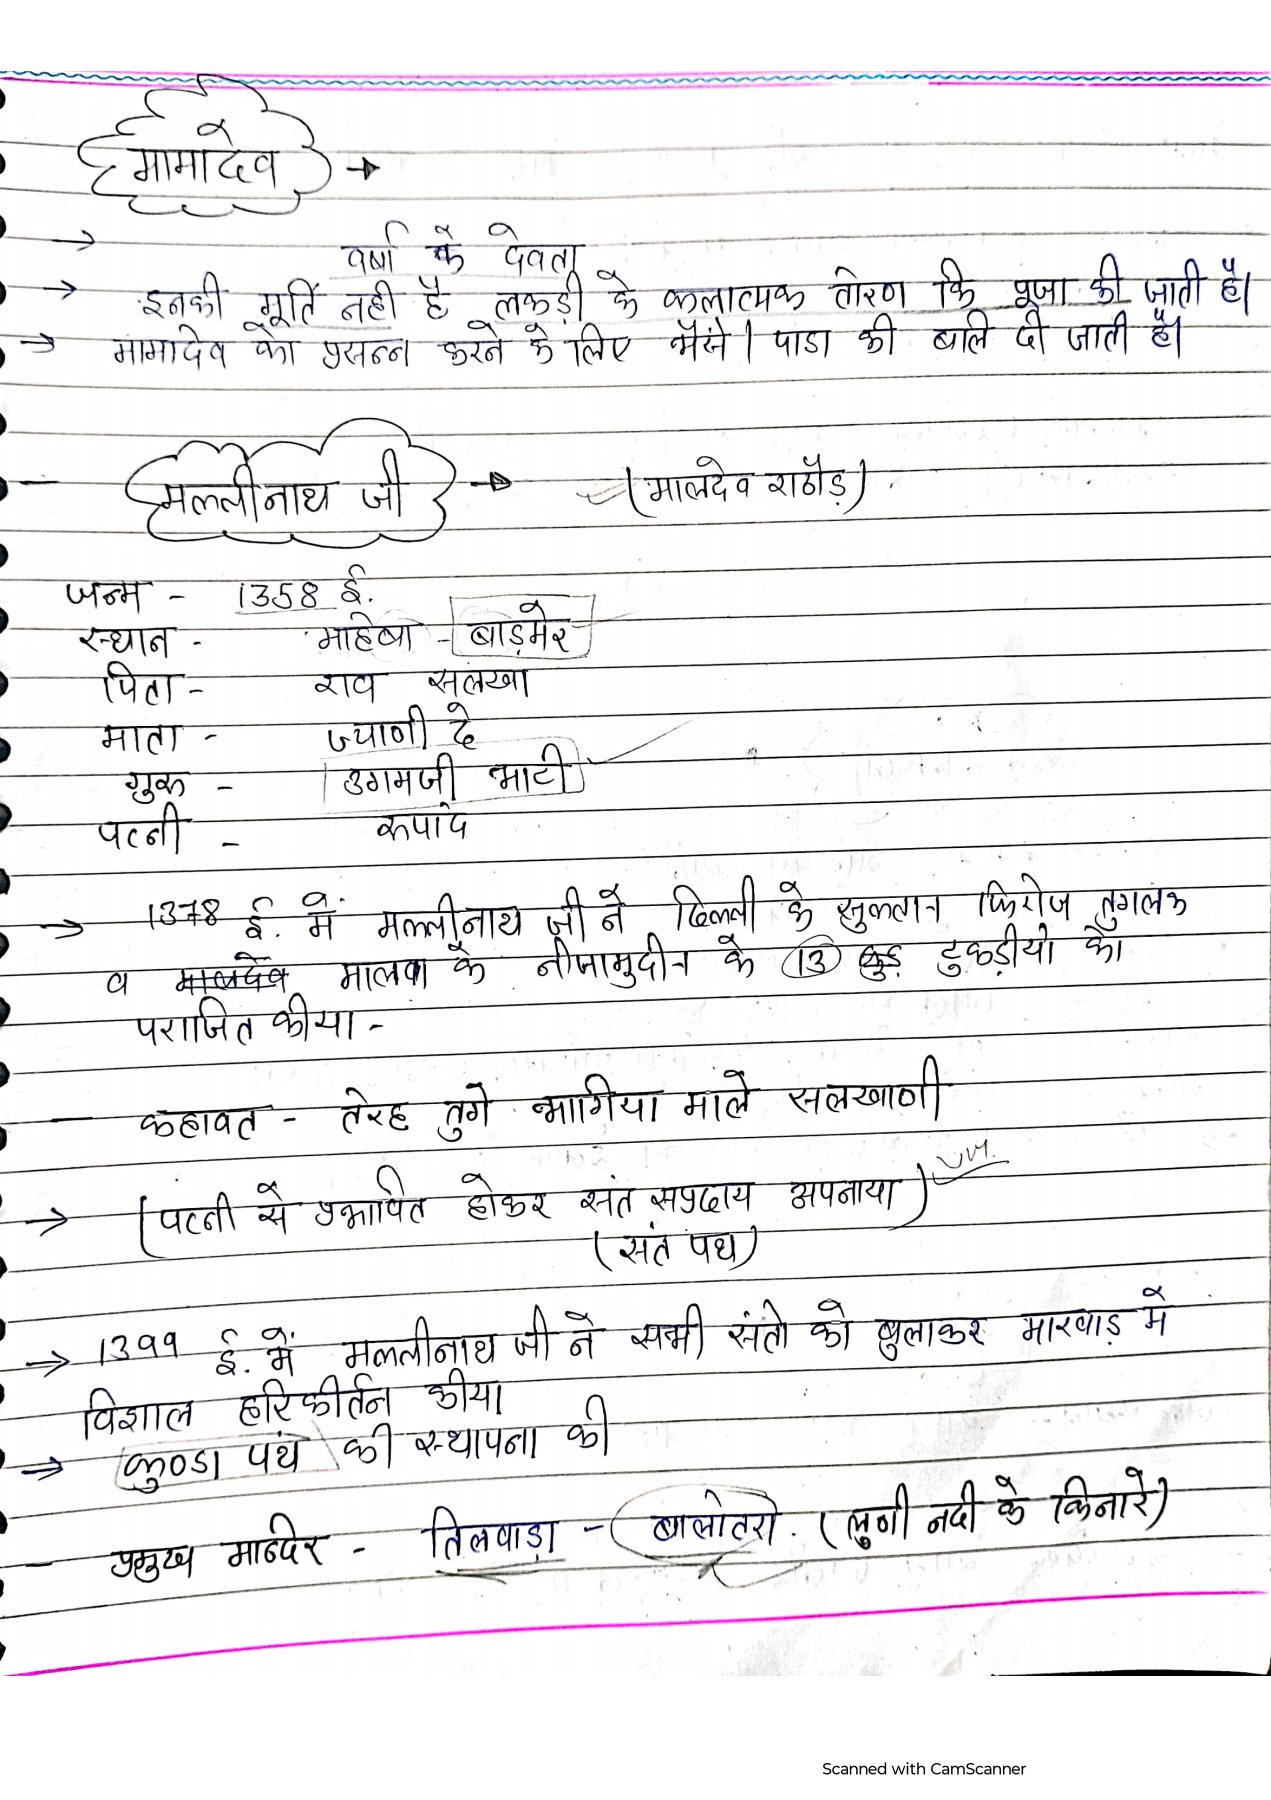 मामादेव →
→ वर्षा के देवता
→ इनकी मूर्ति नही है लकड़ी के कलात्मक तोरण कि पूजा की जाती है।
→ मामादेव को प्रसन्न करने के लिए भैंसे। पाडा की बलि दी जाती है।
मल्लीनाथ जी → (मालदेव राठौड़)
जन्म - 1358 ई.
स्थान - माहेबा - बाड़मेर
पिता - राव सलखा
माता - ज्याणी दे
गुरू - उगमजी भाटी
पत्नी - रूपादे
→ 1378 ई. में मल्लीनाथ जी ने दिल्ली के सुल्तान फिरोज तुगलक
व मालदेव मालवा के नीजामुदीन के 13 टुकड़ीयो को
पराजित कीया -
कहावत - तेरह तुगे भागिया माले सलखाणी
→ (पत्नी से प्रभावित होकर संत सप्रदाय अपनाया)
(संत पंथ)
→ 1399 ई. में मल्लीनाथ जी ने सभी संतो को बुलाकर मारवाड़ में
विशाल हरिकीर्तन कीया
→ कुण्डा पंथ की स्थापना की
- प्रमुख मन्दिर - तिलवाड़ा - बालोतरा. (लुणी नदी के किनारे)
Scanned with CamScanner